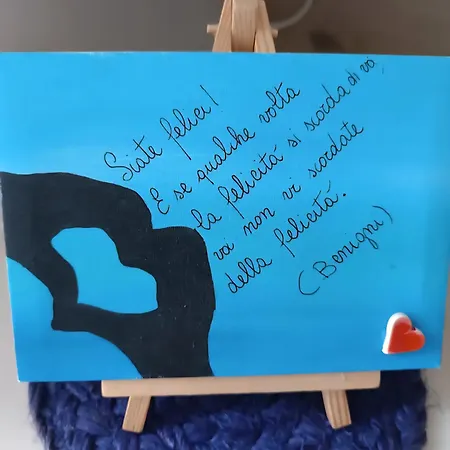 Siate felici!
E se qualche volta
la felicità si scorda di voi,
voi non vi scordate
della felicità.
(Benigni)